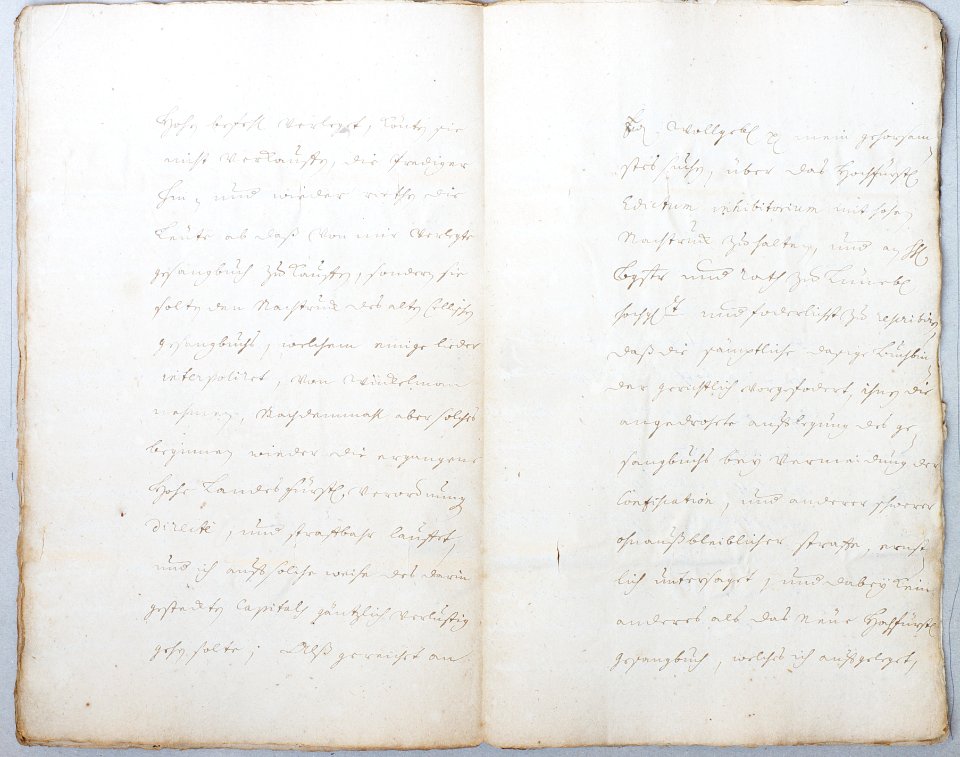 Hohe befehl verleget, könte sie
nicht verkauffen, die Prediger
hin und wieder riethen die
Leute ab daß von mir verlegte
gesangbuch zu kauffen, sondern sie
solten den Nachtruck des alten Cellischen
gesangbuchs, welchem einige lieder
interpoliret, von Winckelman
nehmen, Nachdemmahl aber solches
beginnen wieder die ergangene
Hohe Landesfürstl. verordnung
directè, und straffbahr lauffet,
und ich auff solche weise des darin
gesteckten Capitals gäntzlich verlustig
gehen solte; Alß gereichet an
Ew. Wollgebl. mein gehorsam
stes suchen, über das Hochfürstl.
Edictum inhibitorium mit hohen
Nachtruck zuhalten, und an
Bgstr und Rath zu Lünebl.
und foderlichst zu rescribiren,
daß die sämptliche dasige Buchbin
der gerichtlich vorgefodert, ihnen die
angedrohete aufflegung des ge
sangbuchs bey vermeidung der
Confiscation, und anderer schwerer
ohnaußbleiblicher straffe, ernst
lich untersaget, und dabey kein
anderes als das Neue Hochfürstl.
gesangbuch, welches ich auffgeleget,